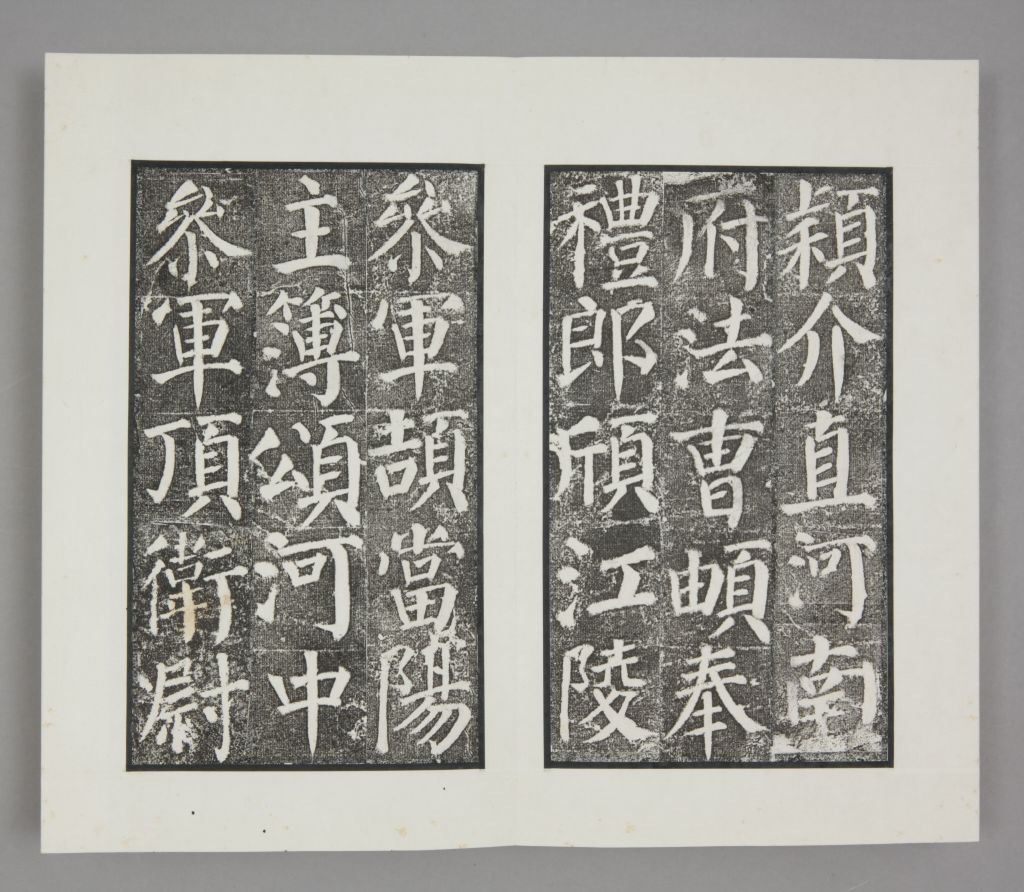 穎介直河南
府法曹頔奉
禮郎頎江陵
參軍頡當陽
主簿頌河中
參軍頂衛尉